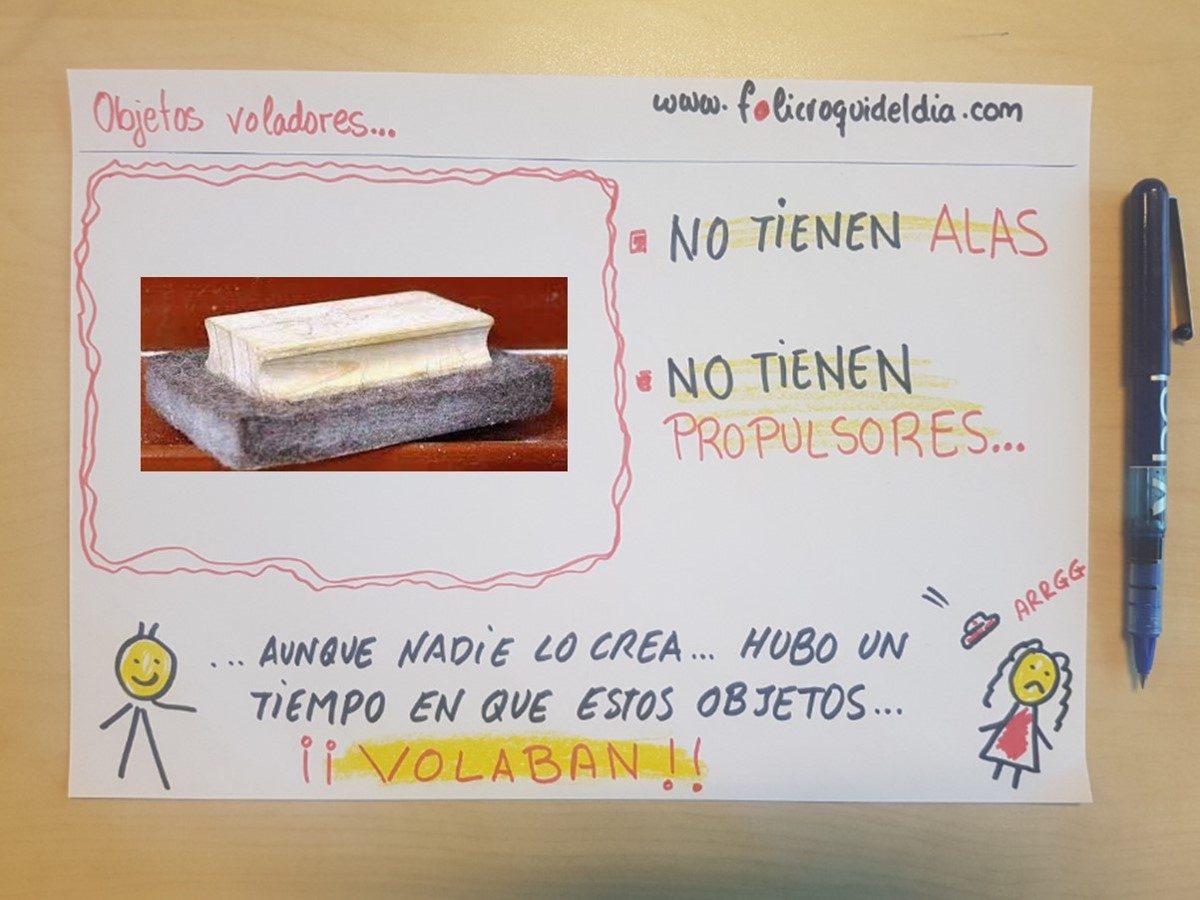 Objetos voladores...
www.folicroquideldia.com
NO TIENEN ALAS
NO TIENEN
PROPULSORES...
ARRGG
... AUNQUE NADIE LO CREA... HUBO UN
TIEMPO EN QUE ESTOS OBJETOS...
¡¡ VOLABAN !!
PILOT
V